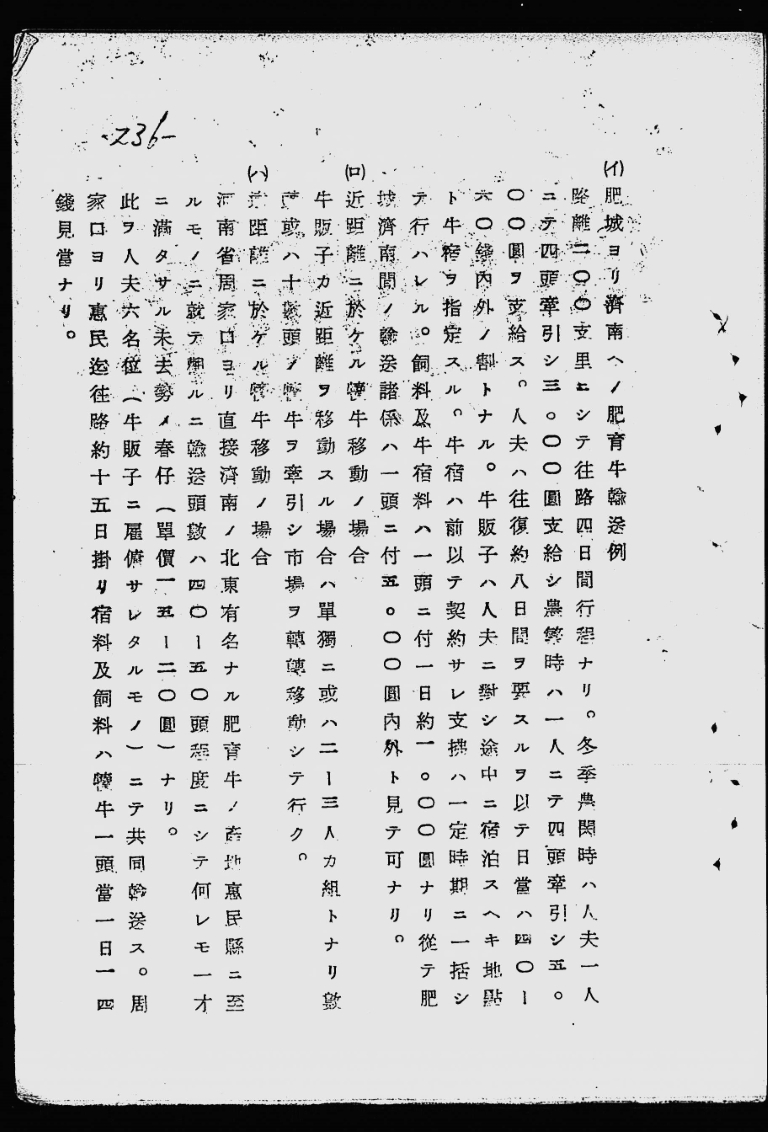 -236-
(イ)肥城ヨリ濟南ヘノ肥育牛輸送例
路離二〇〇支里ニシテ往路四日間行程ナリ。冬季農閑時ハ人夫一人
ニテ四頭牽引シ三。〇〇圓支給シ農繁時ハ一人ニテ四頭牽引シ五。
〇〇圓ヲ支給ス。人夫ハ往復約八日間ヲ要スルヲ以テ日當ハ四〇ー
六〇錢內外ノ割トナル。牛販子ハ人夫ニ對シ途中ニ宿泊スヘキ地點
ト牛宿ヲ指定スル。牛宿ハ前以テ契約サレ支拂ハ一定時期ニ一括シ
テ行ハレル。飼料及牛宿料ハ一頭ニ付一日約一。〇〇圓ナリ從テ肥
城濟南間ノ輸送諸係ハ一頭ニ付五。〇〇圓內外ト見テ可ナリ。
(ロ)近距離ニ於ケル犢牛移動ノ場合
牛販子カ近距離ヲ移動スル場合ハ單獨ニ或ハ二ー三人カ組トナリ數
頭或ハ十數頭ノ犢牛ヲ牽引シ市場ヲ轉轉移動シテ行ク。
(ハ)遠距離ニ於ケル犢牛移動ノ場合
河南省周家口ヨリ直接濟南ノ北東有名ナル肥育牛ノ產地惠民縣ニ至
ルモノニ就テ聞ルニ輸送頭數ハ四〇ー五〇頭程度ニシテ何レモ一才
ニ滿タサル未去勢ノ春仔(單價一五ー二〇圓)ナリ。
此ヲ人夫六名位(牛販子ニ雇傭サレタルモノ)ニテ共同輸送ス。周
家口ヨリ惠民迄往路約十五日掛リ宿料及飼料ハ犢牛一頭當一日一四
錢見當ナリ。